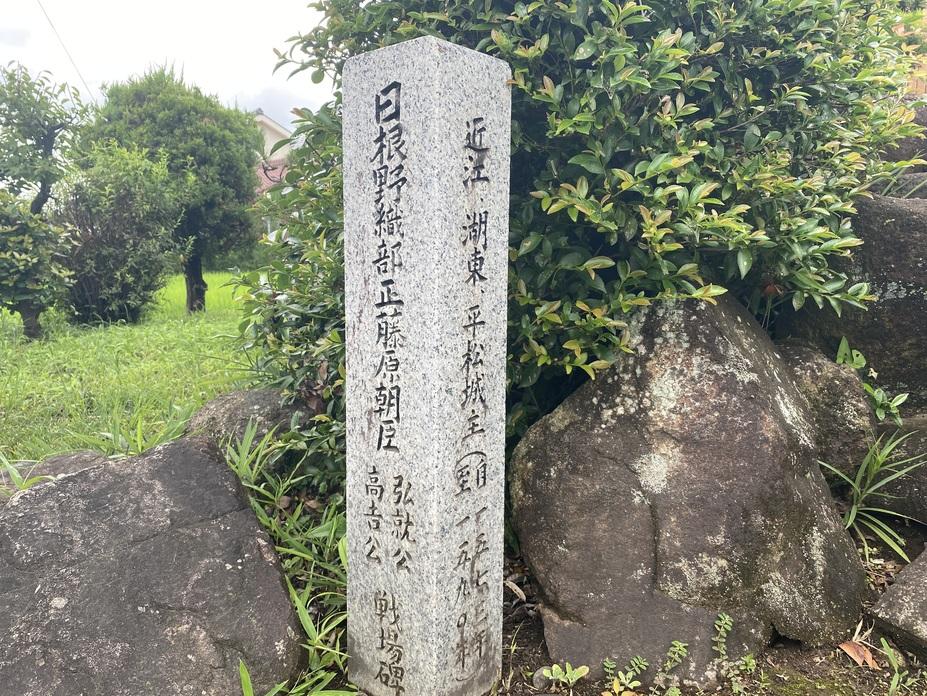 近江 湖東 平松城主(自 一五七七年
至 一五九〇年)
日根野織部正藤原朝臣
弘就公
高吉公
戦場碑